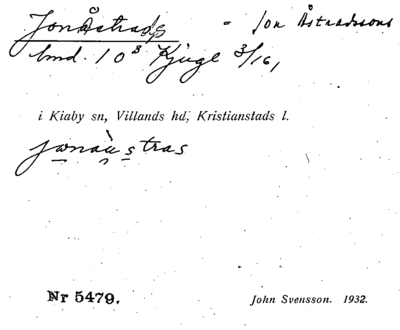 Jonåstrads - Jon Åstradssons
hmd. 10³ Kjuge 3/16,
i Kiaby sn, Villands hd, Kristianstads l.
jonau̇stras
Nr 5479.
John Svensson. 1932.